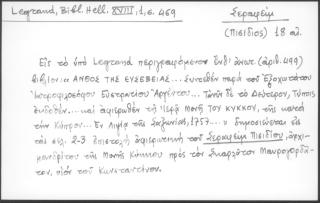 Legrand, Bibl. Hell. XVIII, 1, σ. 469
Σεραφείμ
(Πισίδιος) 18 αἰ.
Εἰς τὸ ὑπὸ Legrand περιγραφόμενον ἐνθ' ἄνωτ. (ἀριθ. 499)
βιβλίον: « ΑΝΘΟΣ ΤΗΣ ΕΥΣΕΒΕΙΑΣ... συντεθὲν παρὰ τοῦ Ἐξοχωτάτου
Ἰατροφιλοσόφου Εὐστρατίου Ἀργέντου... Τανῦν δὲ τὸ Δεύτερον, Τύποις
ἐκδοθὲν... καὶ ἀφιερωθὲν τῇ Ἱερᾷ Μονῇ ΤΟΥ ΚΥΚΚΟΥ, τῆς κατὰ
τὴν Κύπρον... Ἐν Λειψίᾳ τῆς Σαξωνίας, 1757... » δημοσιεύεται εἰς
τὰς σελ. 2-3 ἐπιστολὴ ἀφιερωτικὴ τοῦ Σεραφεὶμ Πισιδίου, ἀρχι-
μανδρίτου τῆς Μονῆς Κύκκου πρὸς τὸν Σκαρλᾶτον Μαυροκορδᾶ-
τον, υἱὸν τοῦ Κωνσταντίνου.